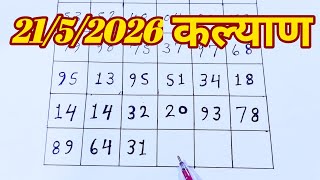 21/5/2026 कल्याण
95 13 95 51 34 18
14 14 32 20 93 78
89 64 31